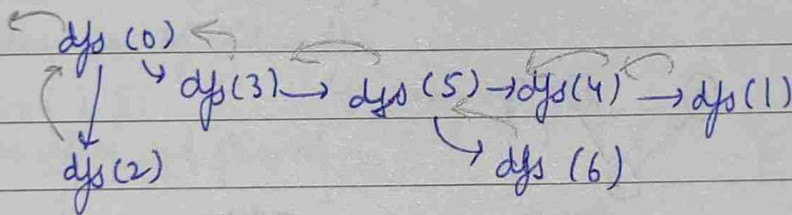 dfs (0)
dfs(3) → dfs (5) → dfs(4) → dfs(1)
dfs(2) dfs (6)